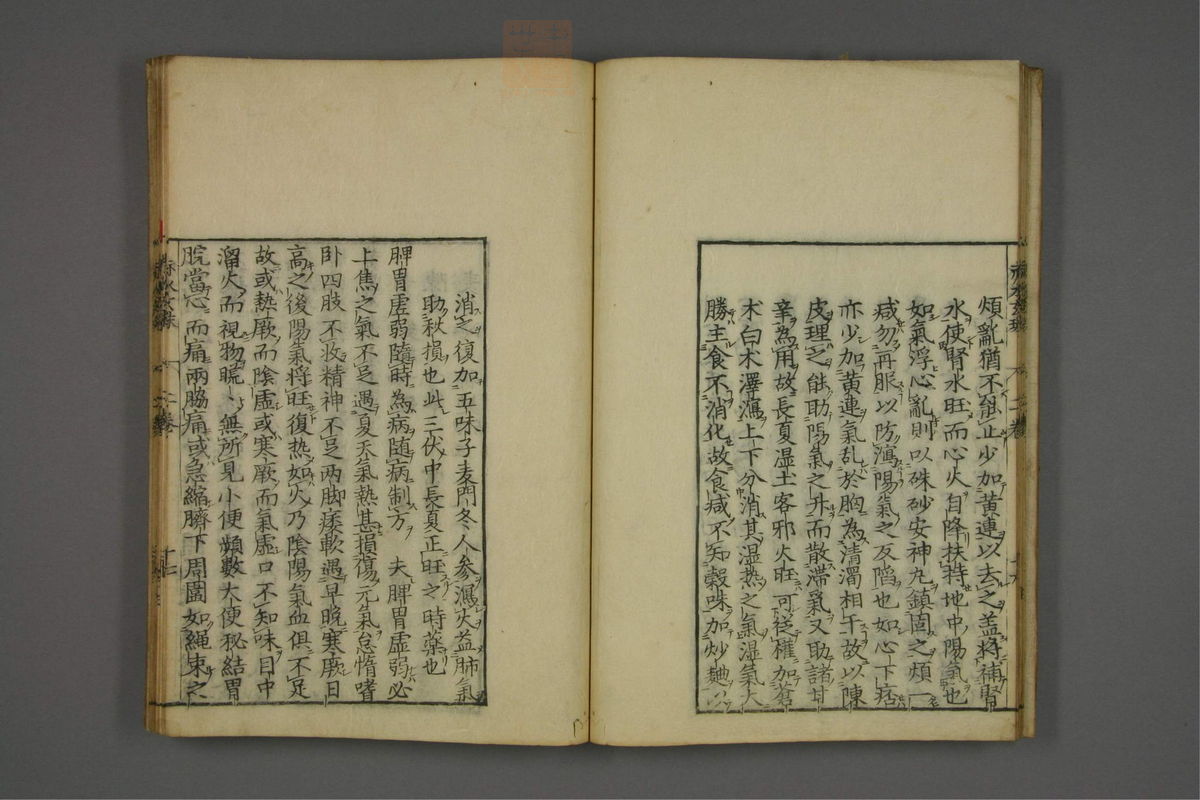 煩亂猶不能止少加黄連以去之盖将補腎
水使腎水旺而心火自降扶持地中陽氣也
如氣浮心亂則以硃砂安神丸鎮固之煩一
减勿再服以防瀉陽氣之反陷也如心下痞
亦少加黄連氣乱於胸為清濁相干故以陳
皮理之能助陽氣之升而散滞氣又助諸甘
辛為用故長夏湿土客邪火旺可從權加蒼
术白术澤瀉上下分消其湿熱之氣湿氣大
勝主食不消化故食减不知穀味加炒麯以
赤水玄珠 二卷
消之復加五味子麦門冬人参瀉火益肺氣
助秋損也此三伏中長夏正旺之時藥也
脾胃虚弱隨時為病随病制方 夫脾胃虚弱必
上焦之氣不足遇夏天氣熱甚損傷元氣怠惰嗜
卧四肢不收精神不足两脚痿軟遇早晚寒厥日
高之後陽氣将旺復热如火乃陰陽氣血俱不足
故或熱厥而陰虚或寒厥而氣虚口不知味目中
溜火而視物䀮䀮無所見小便頻數大便秘結胃
脘當心而痛兩脇痛或急縮臍下周圍如繩束之
赤水玄珠 二卷 十二